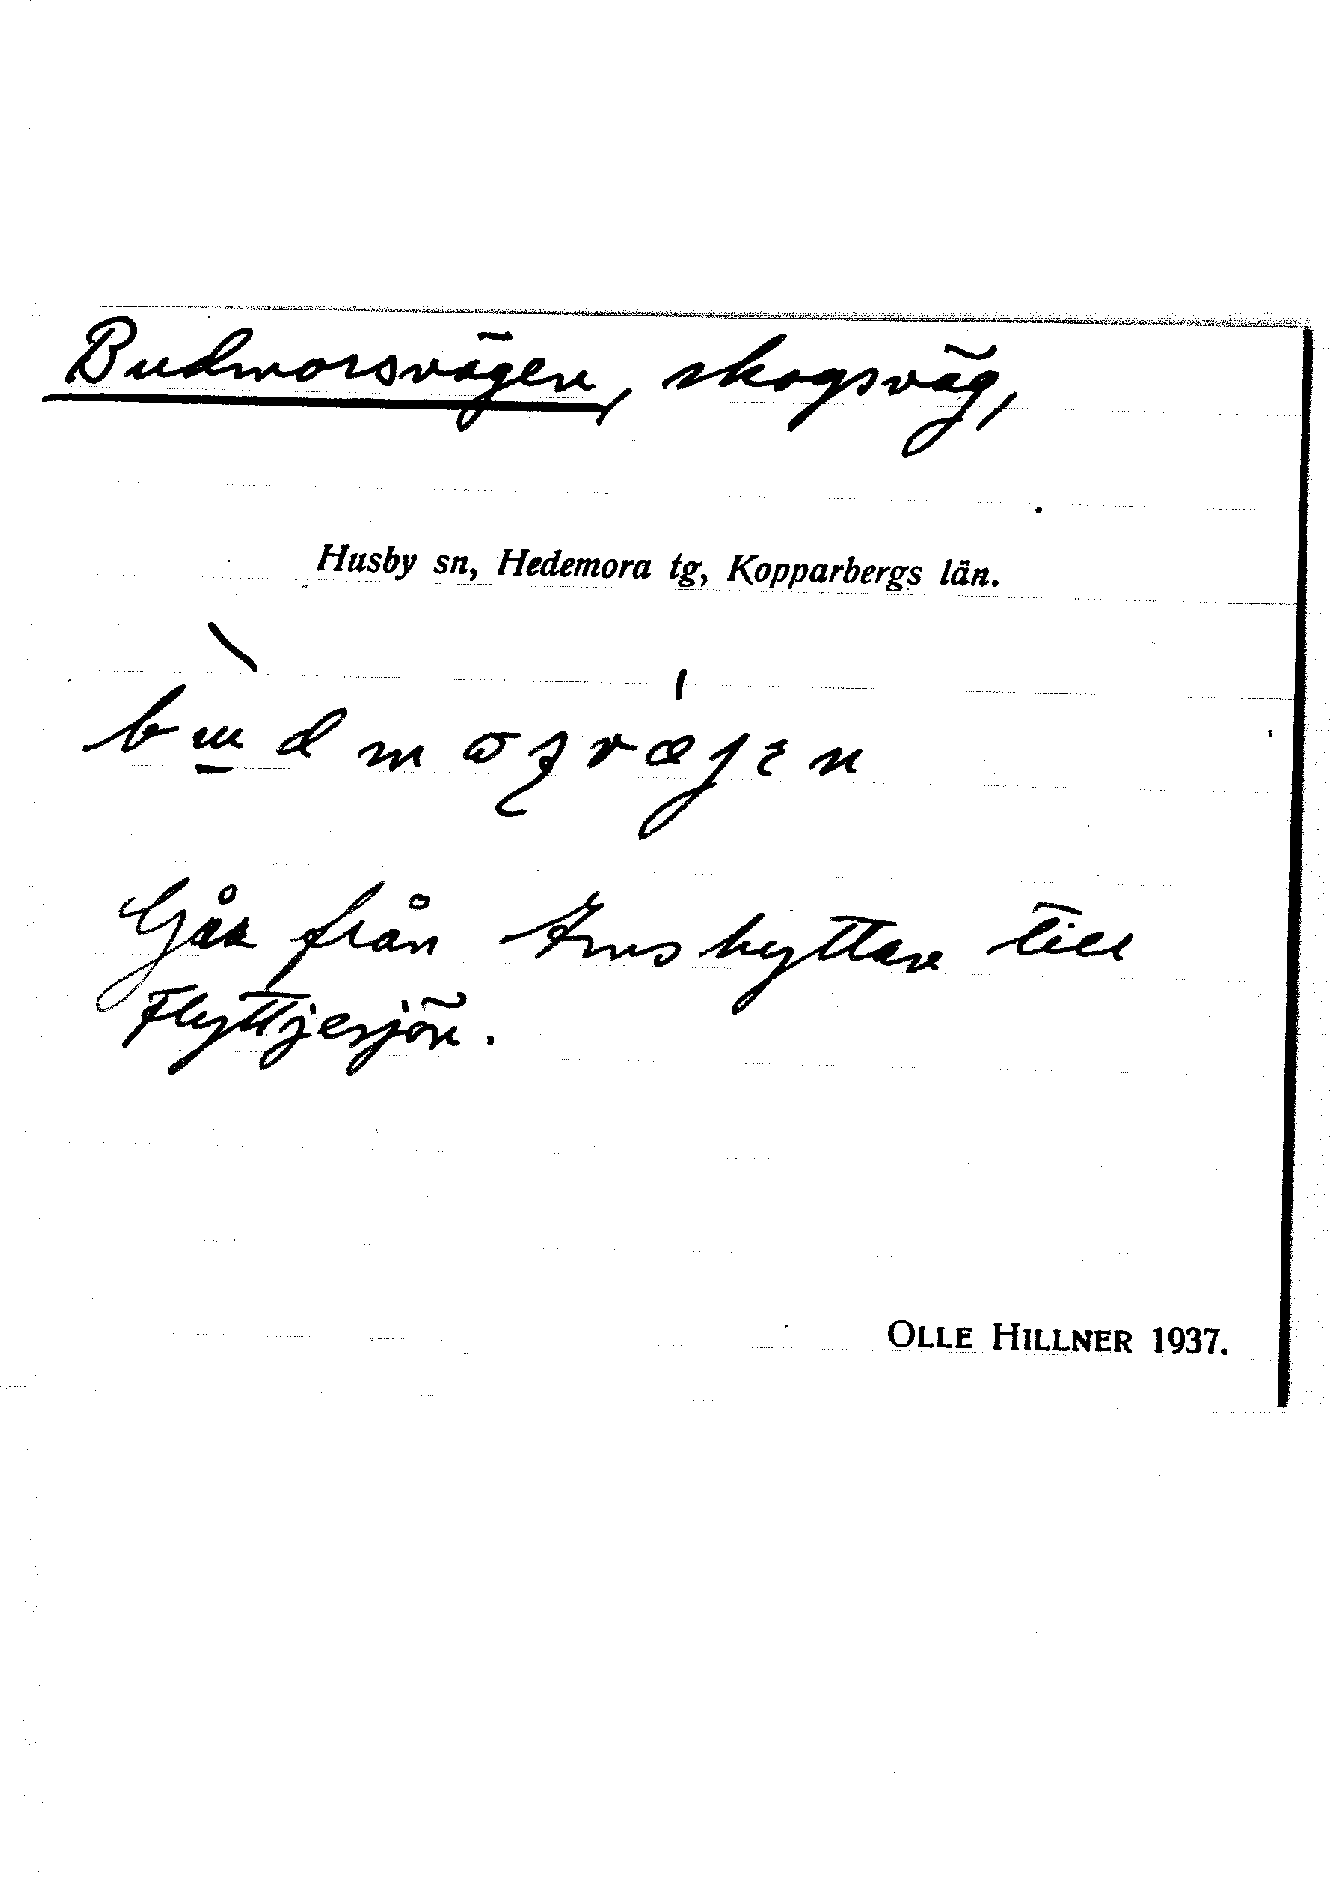 Budmorsvägen, skogsväg,
Husby sn, Hedemora tg, Kopparbergs län.
Går från hyttan till
Flyttjesjön.
OLLE HILLNER 1937.